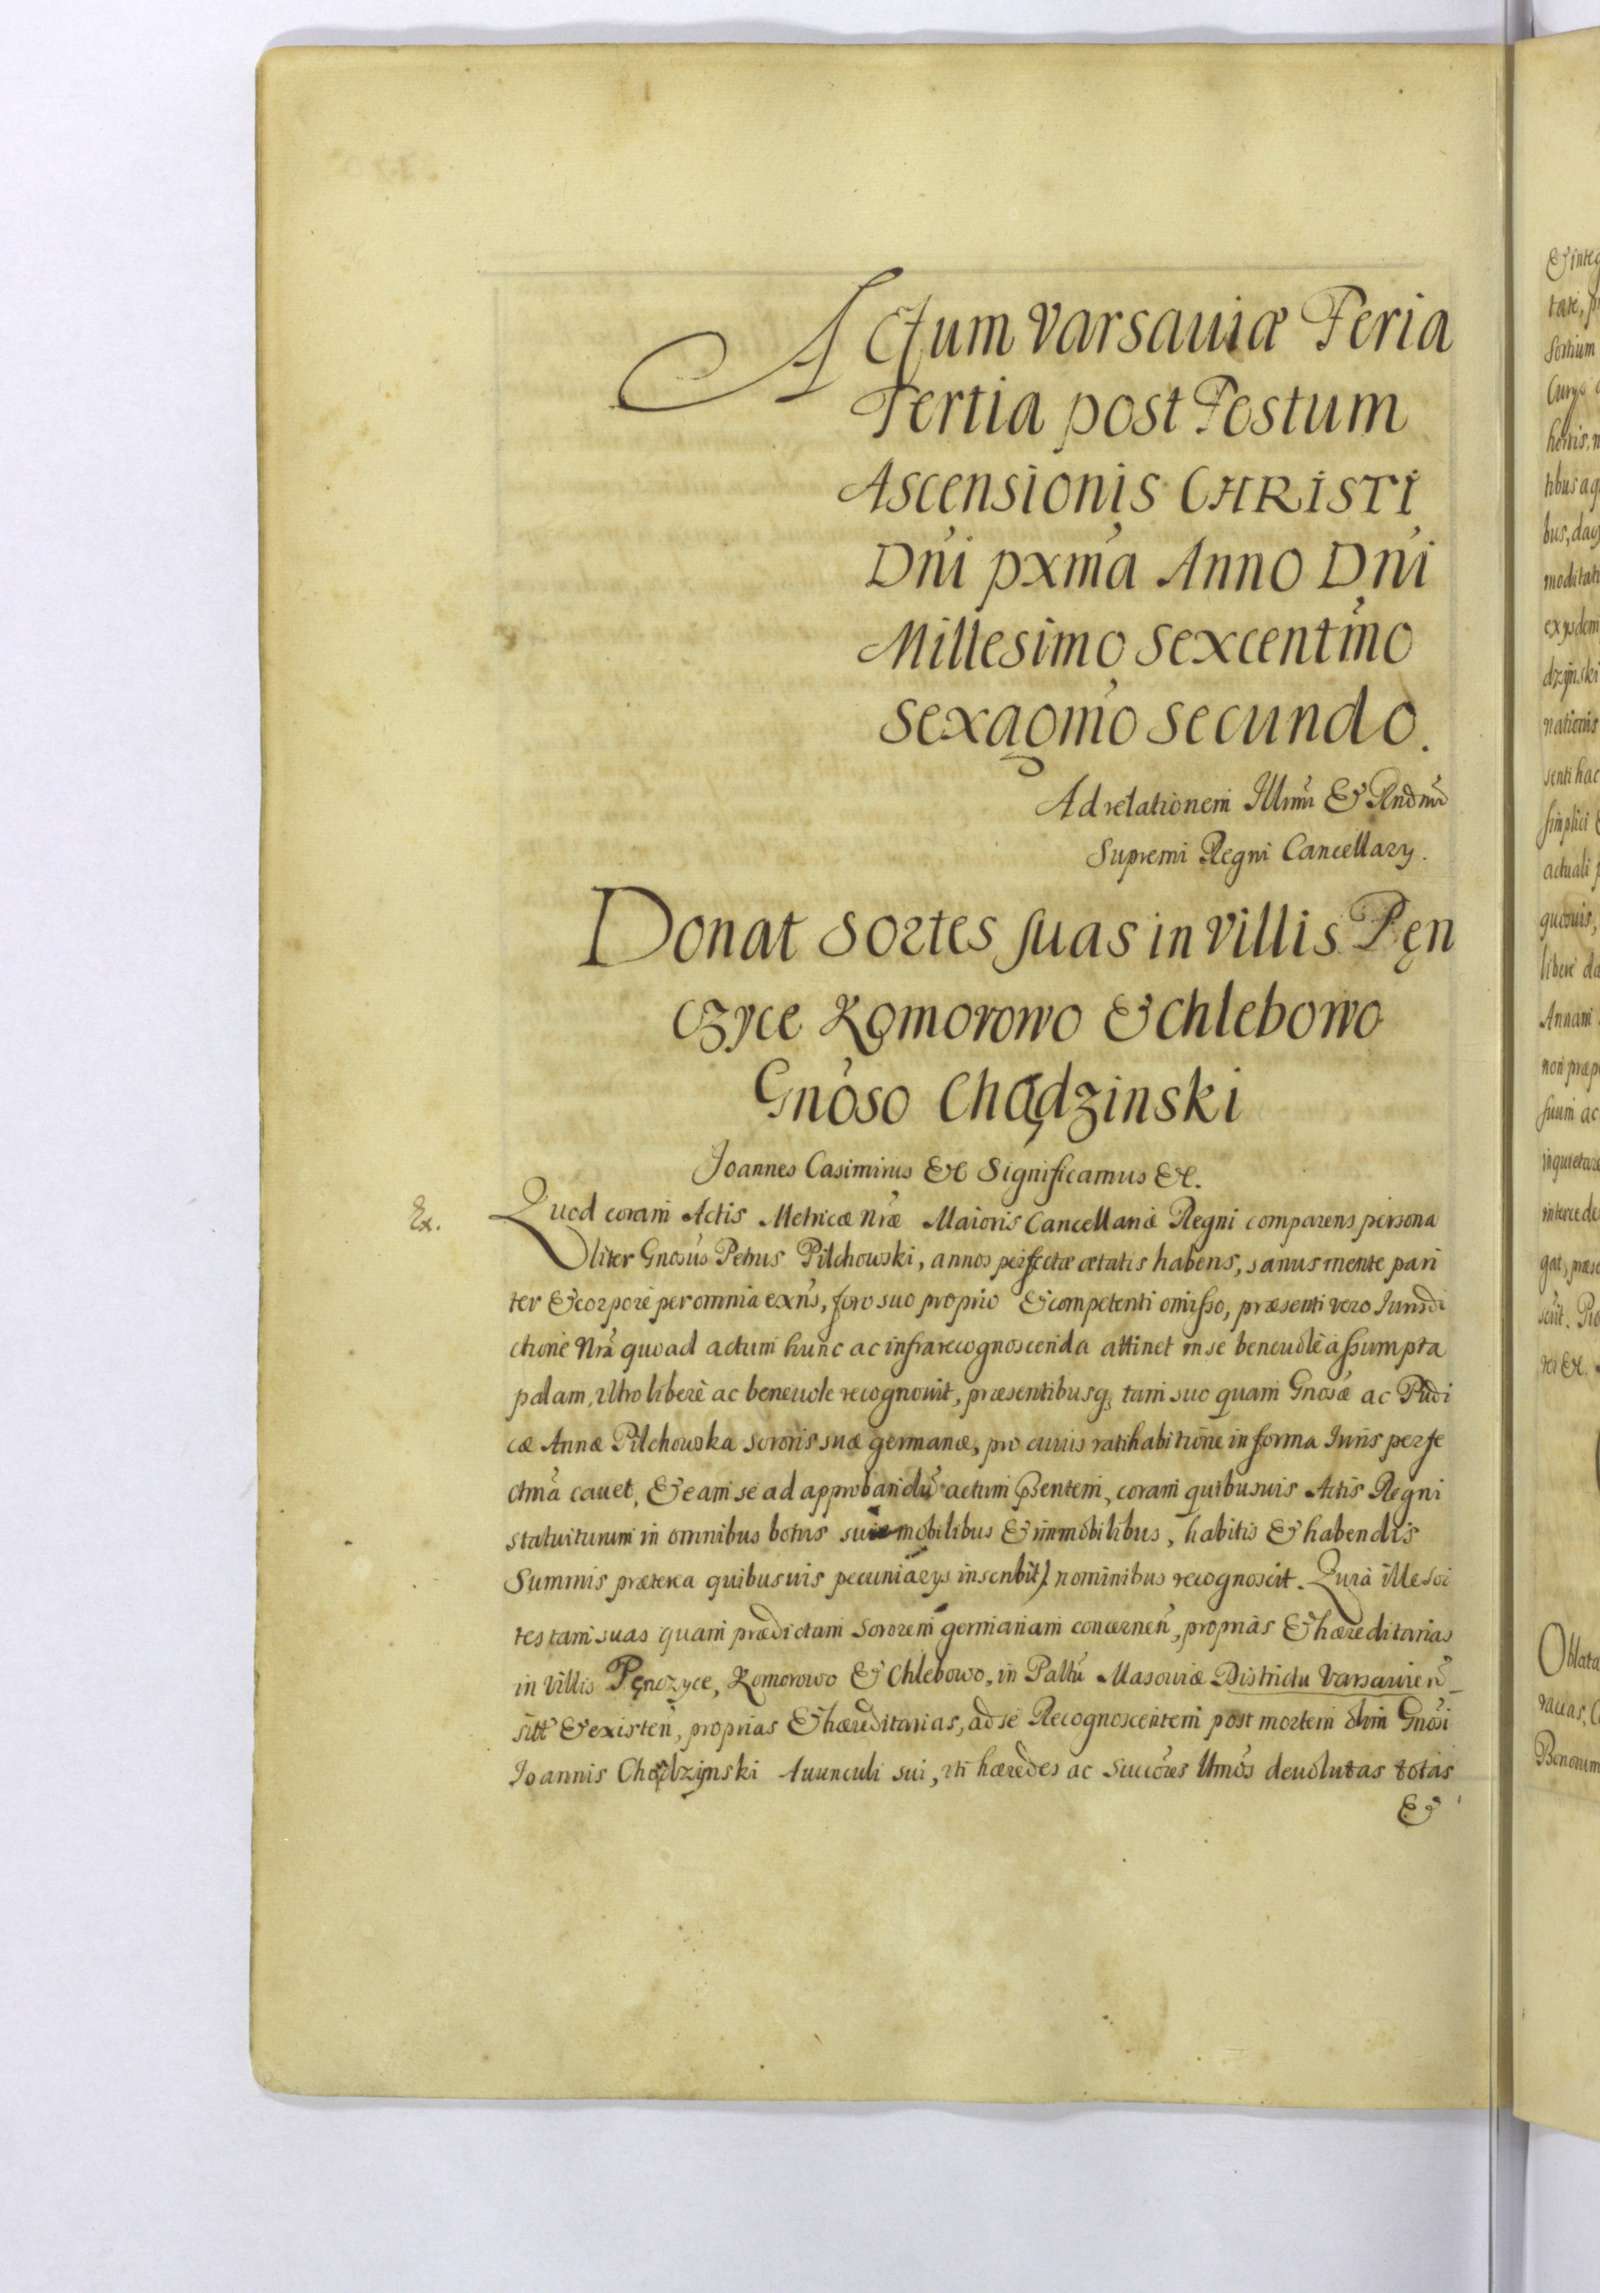 Actum Varsauiæ Feria
Tertia post Festum
Ascensionis CHRISTI
Dni pxma Anno Dni
Millesimo Sexcentmo
Sexagmo Secundo.
Ad relationem Illmi & Rndmi
Supremi Regni Cancellary.
Donat Sortes suas in Villis Pęn
czyce Komorowo & Chlebowo
Gnoso Chądzinski
Joannes Casimirus &c Significamus &c.
Ex.
Quod coram Actis Metricæ Nræ Maioris Cancellariæ Regni comparens persona
liter Gnosus Petrus Pilchowski, annos perfectæ ætatis habens, sanus mente pari
ter & corpore per omnia exns, foro suo proprio & competenti omisso, præsenti vero Iurisdi
ctione Nra quoad actum hunc ac infrarecognoscenda attinet in se beneuole assumpta
palam, vltro libere ac beneuole recognouit, præsentibusq tam suo quam Gnosæ ac Pudi
cæ Annæ Pilchowska sororis suæ germanæ, pro cuius ratihabitione in forma Iuris perfe
ctma cauet, & eam se ad approbandu actum psentem, coram quibusuis Actis Regni
statuiturum in omnibus bonis suis mobilibus & immobilibus, habitis & habendis
Summis præterea quibusuis pecuniarys inscribit) nominibus recognoscit. Quia ille Sor
tes tam suas quam prædictam Sororem germanam concernen, proprias & hæreditarias
in Villis Pęnczyce, Komorowo & Chlebowo, in Pallu Masouiæ Districtu Varsauien
sitt & existen, proprias & hæreditarias, ad se Recognoscentem post mortem olim Gnosi
Joannis Chądzynski Auunculi sui, vti hæredes ac Succores Umos deuolutas totas
&